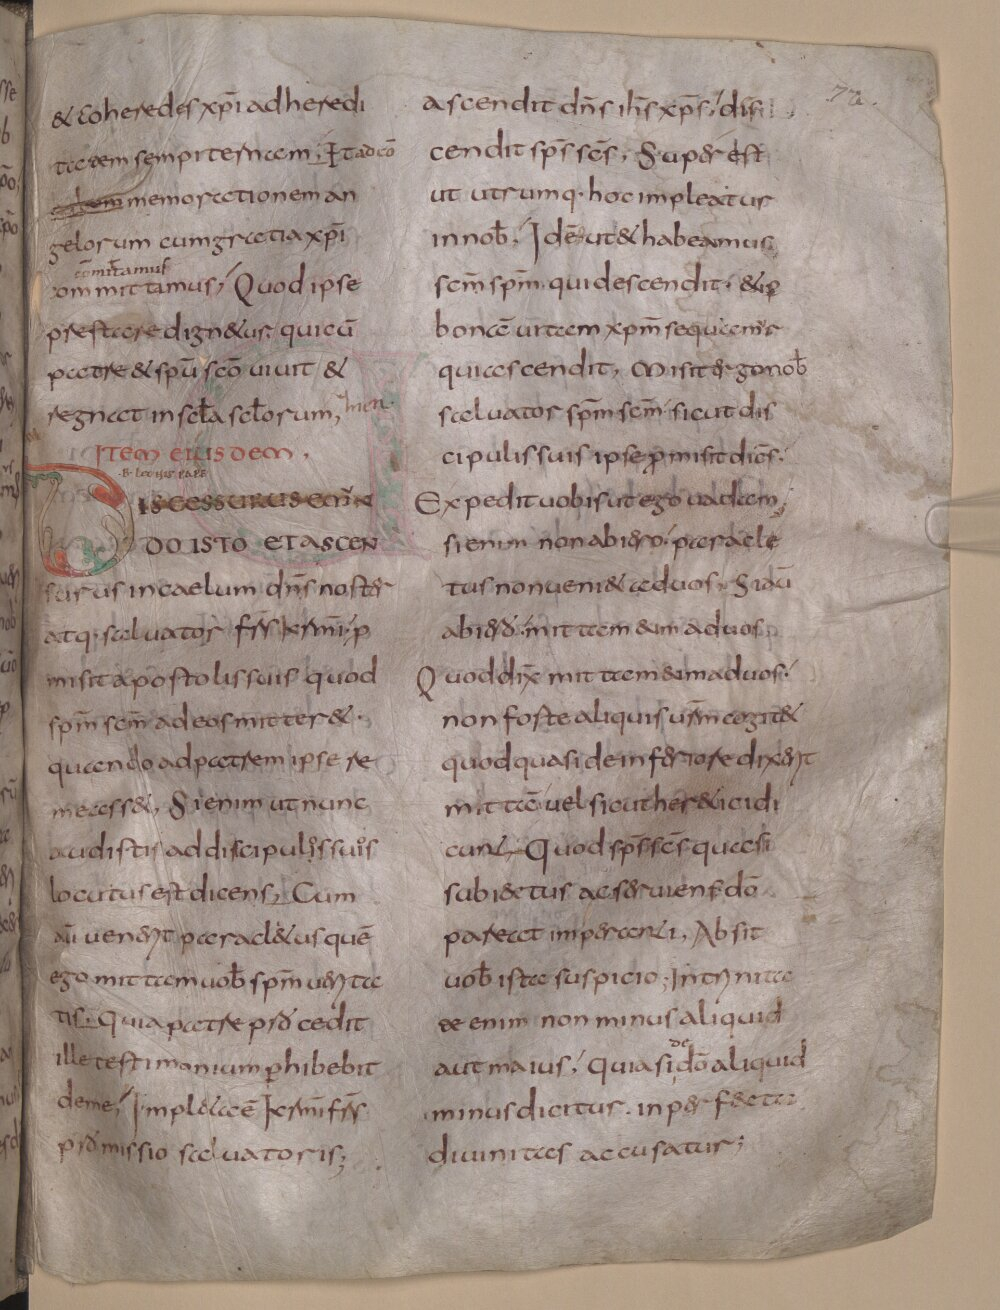 & coheredes xp̄i ad heredi
tatem sempiternam, Et ad cō
memorationem an
gelorum cum gratia xp̄i
cōmittamus
ommittamus; Quod ipse
prestare dign&ur. qui cū
patre & sp̄u scō vivit &
regnat in sc̄la sc̄lorum, Amen
ITEM EIUSDEM.
DISCESSURUS E MUN
DO ISTO ET ASCEN
surus in caelum dn̄s noster
atq; salvator fr̄s kr̄mi; p
misit apostolis suis quod
sp̄m sc̄m ad eos mitter&.
quando ad patrem ipse re
meass&, Si enim ut nunc
audistis ad discipulos suos
locutus est dicens; Cum
aū venerit paracl&us quē
ego mittam vob̄ sp̄m verita
tis. Quia patre procedit
ille testimonium perhibebit
de me; Impl&a ē kr̄mi fr̄s
promissio salvatoris;
77.
ascendit dn̄s ih̄s xp̄s; dis
cendit sp̄s sc̄s, Super est
ut utrumq; hoc impleatur
in nob̄, Id ē ut & habeamus
sc̄m sp̄m. qui descendit. & p
bonā vitam xp̄m sequamur
qui ascendit, Misit ergo nob̄
salvator sp̄m sc̄m sicut dis
cipulis suis ipse promisit dicēs.
Expedit vobis ut ego vadam;
si enim non abiero. paracle
tus non veni& ad vos, Si aū
abiero. mittam eum ad vos
Quod dix mittam eum ad vos.
non forte aliquis vr̄m cogit&
quod quasi de inferiore dixerit
mittā vel sicut her&ici di
cunt, Quod sp̄s sc̄s quasi
subiectus ac serviens dō
pareat imperanti, Absit
vob̄ ista suspicio, In trinita
te enim non minus aliquid
aut maius; Quia si de dō aliquid
minus dicitur. in perfecta
divinitas accusatur;